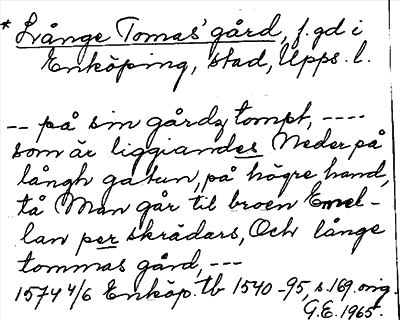 * Långe Tomas' gård, f. gd i
Enköping, stad, Upps. l.
-- på sin gårdz tompt, ----
som är liggiandes Neder på
långh gatun, på högre hand,
tå Man går til broen Emel-
lan per skrädars, Och långe
tommas gård, ---
1574 4/6 Enköp. tb 1540-95, s. 169 orig.
G.E. 1965.